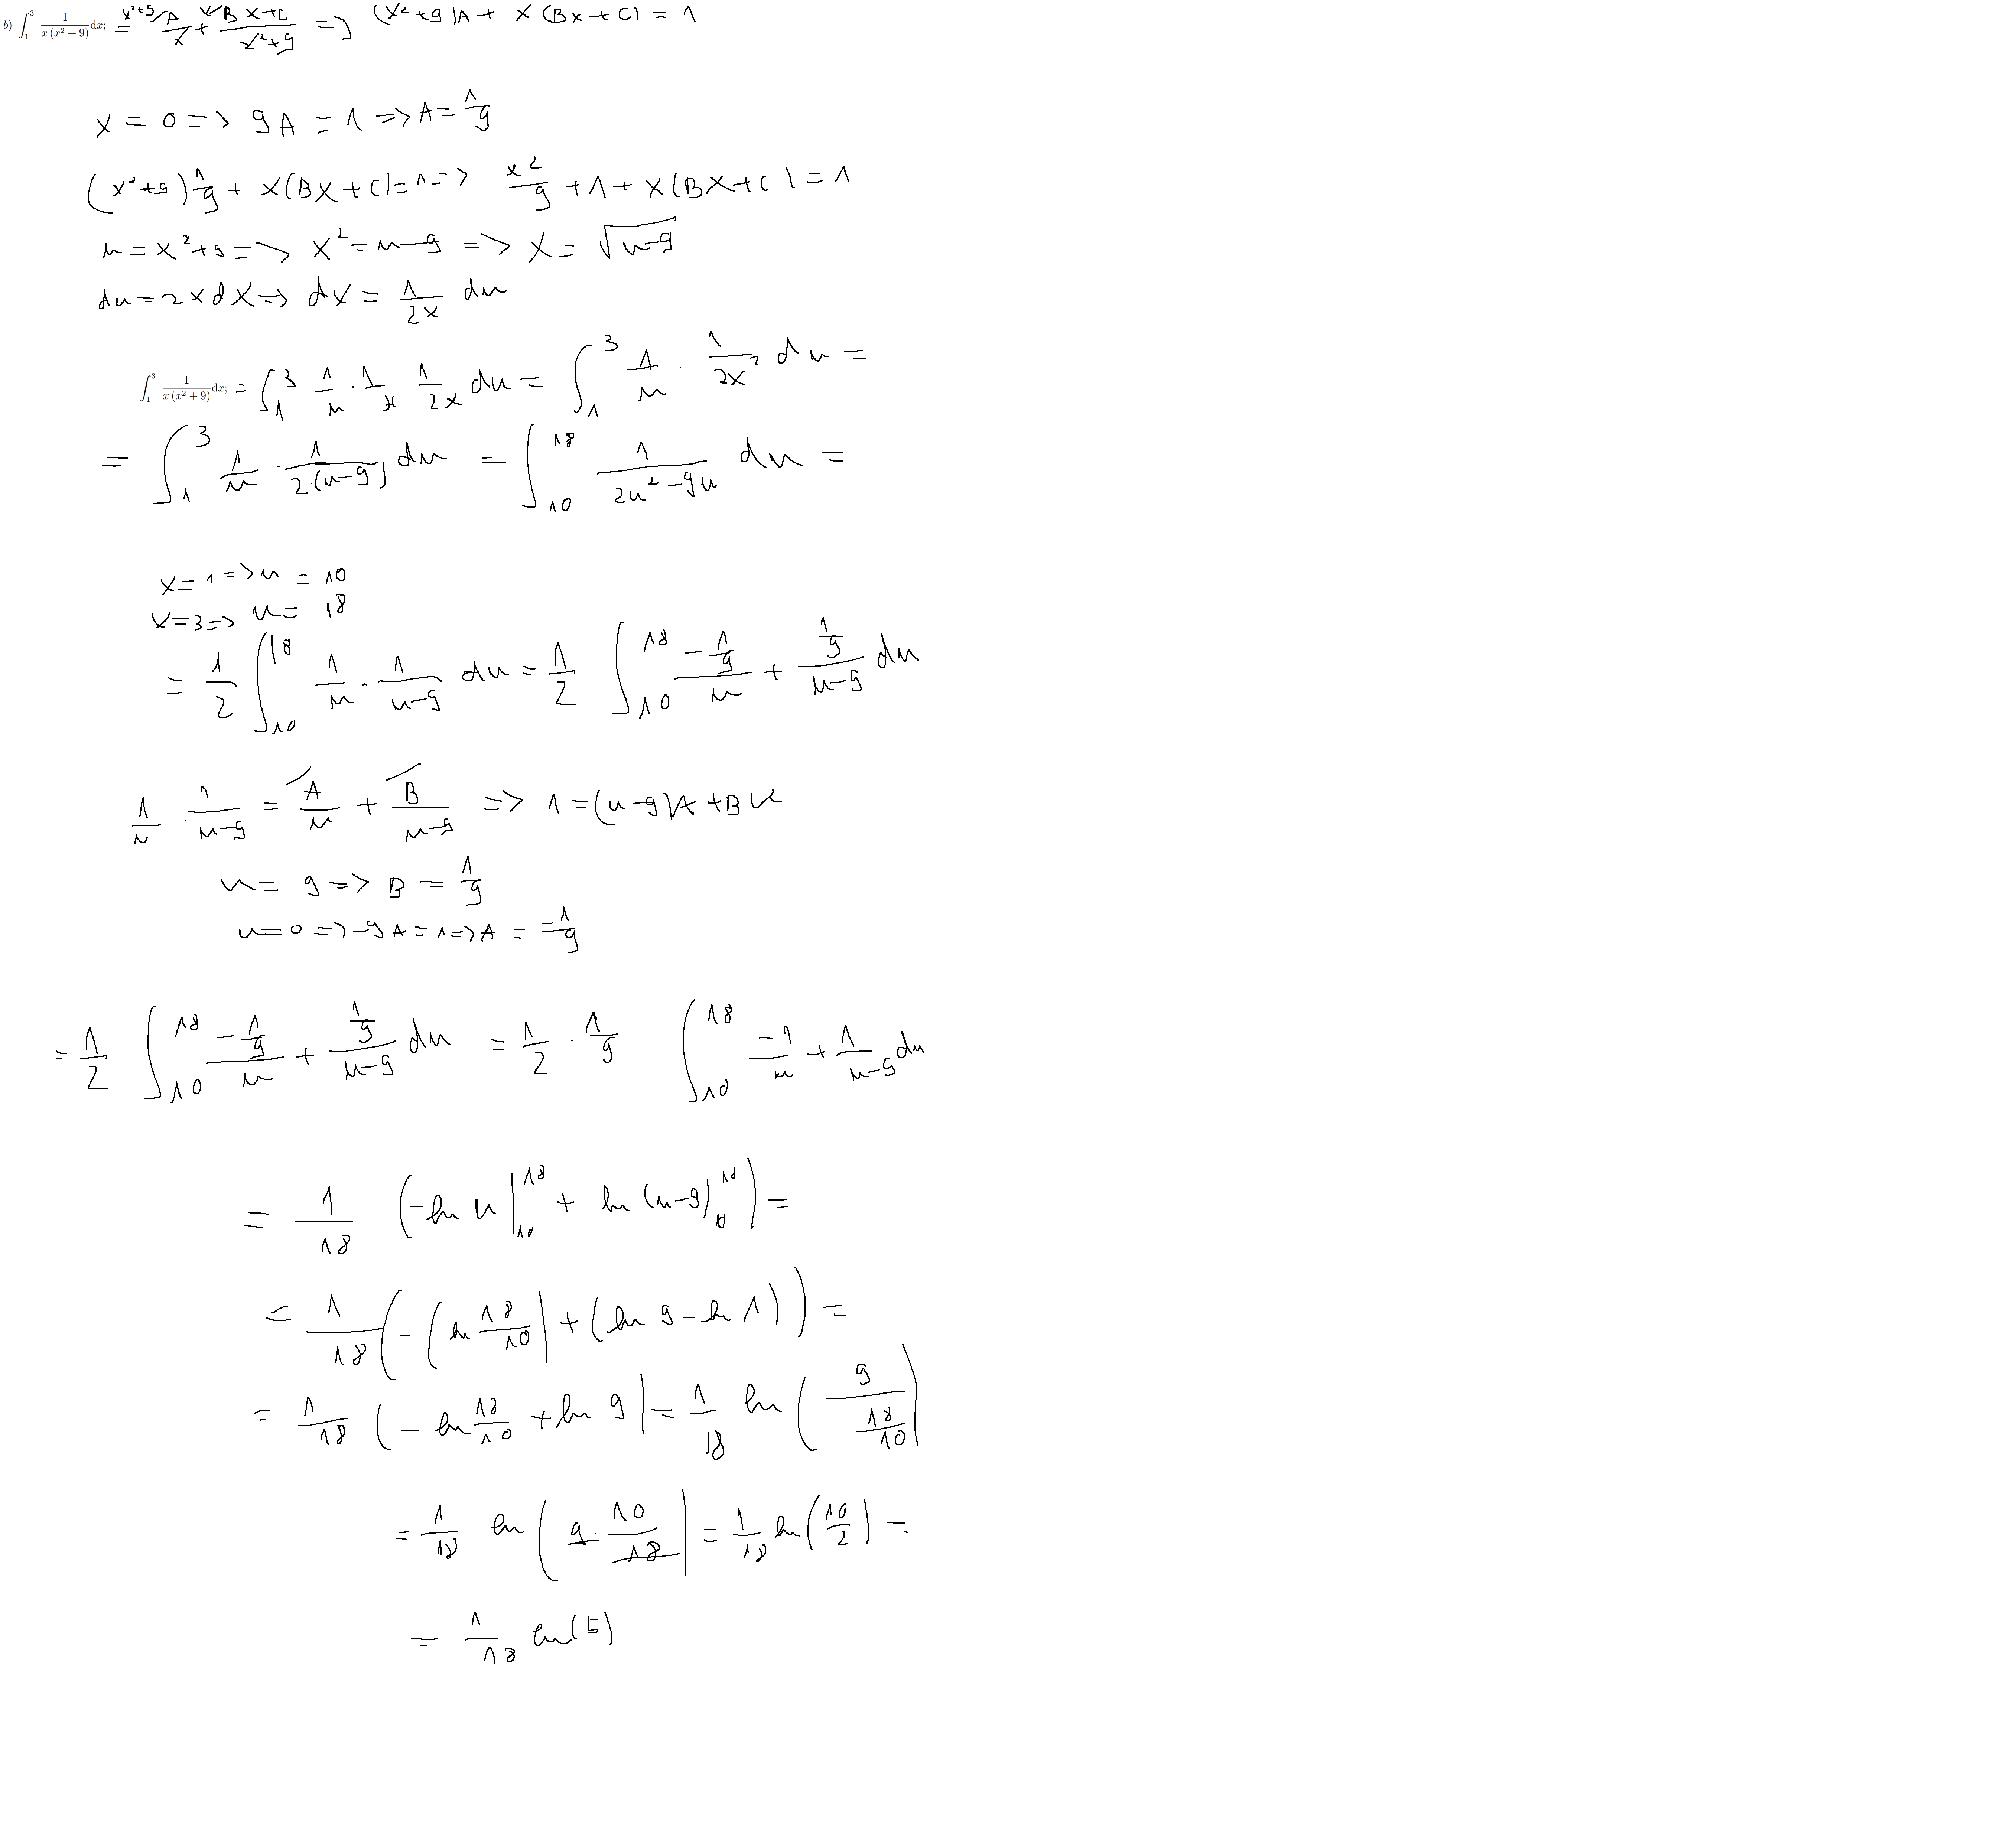 b) ∫₁³ 1/(x(x²+9)) dx; = A/x + (Bx+C)/(x²+9) => (x²+9)A + x(Bx+C) = 1
x = 0 => 9A = 1 => A = 1/9
(x²+9)1/9 + x(Bx+C) = 1 => x²/9 + 1 + x(Bx+C) = 1
u = x²+9 => x² = u-9 => x = √(u-9)
du = 2x dx => dx = 1/(2x) du
∫₁³ 1/(x(x²+9)) dx; = ∫₁³ 1/u · 1/x · 1/(2x) du = ∫₁³ 1/u · 1/(2x²) du =
= ∫₁³ 1/u · 1/(2·(u-9)) du = ∫₁₀¹⁸ 1/(2u²-9u) du =
x = 1 => u = 10
x = 3 => u = 18
= 1/2 ∫₁₀¹⁸ 1/u · 1/(u-9) du = 1/2 ∫₁₀¹⁸ (-1/9)/u + (1/9)/(u-9) du
1/u · 1/(u-9) = A/u + B/(u-9) => 1 = (u-9)A + Bu
u = 9 => B = 1/9
u = 0 => -9A = 1 => A = -1/9
= 1/2 ∫₁₀¹⁸ (-1/9)/u + (1/9)/(u-9) du = 1/2 · 1/9 ∫₁₀¹⁸ -1/u + 1/(u-9) du
= 1/18 (-ln u|₁₀¹⁸ + ln(u-9)|₁₀¹⁸) =
= 1/18 (-(ln 18/10) + (ln 9 - ln 1)) =
= 1/18 (-ln 18/10 + ln 9) = 1/18 ln(9/(18/10))
= 1/18 ln(9 · 10/18) = 1/18 ln(10/2) =
= 1/18 ln(5)